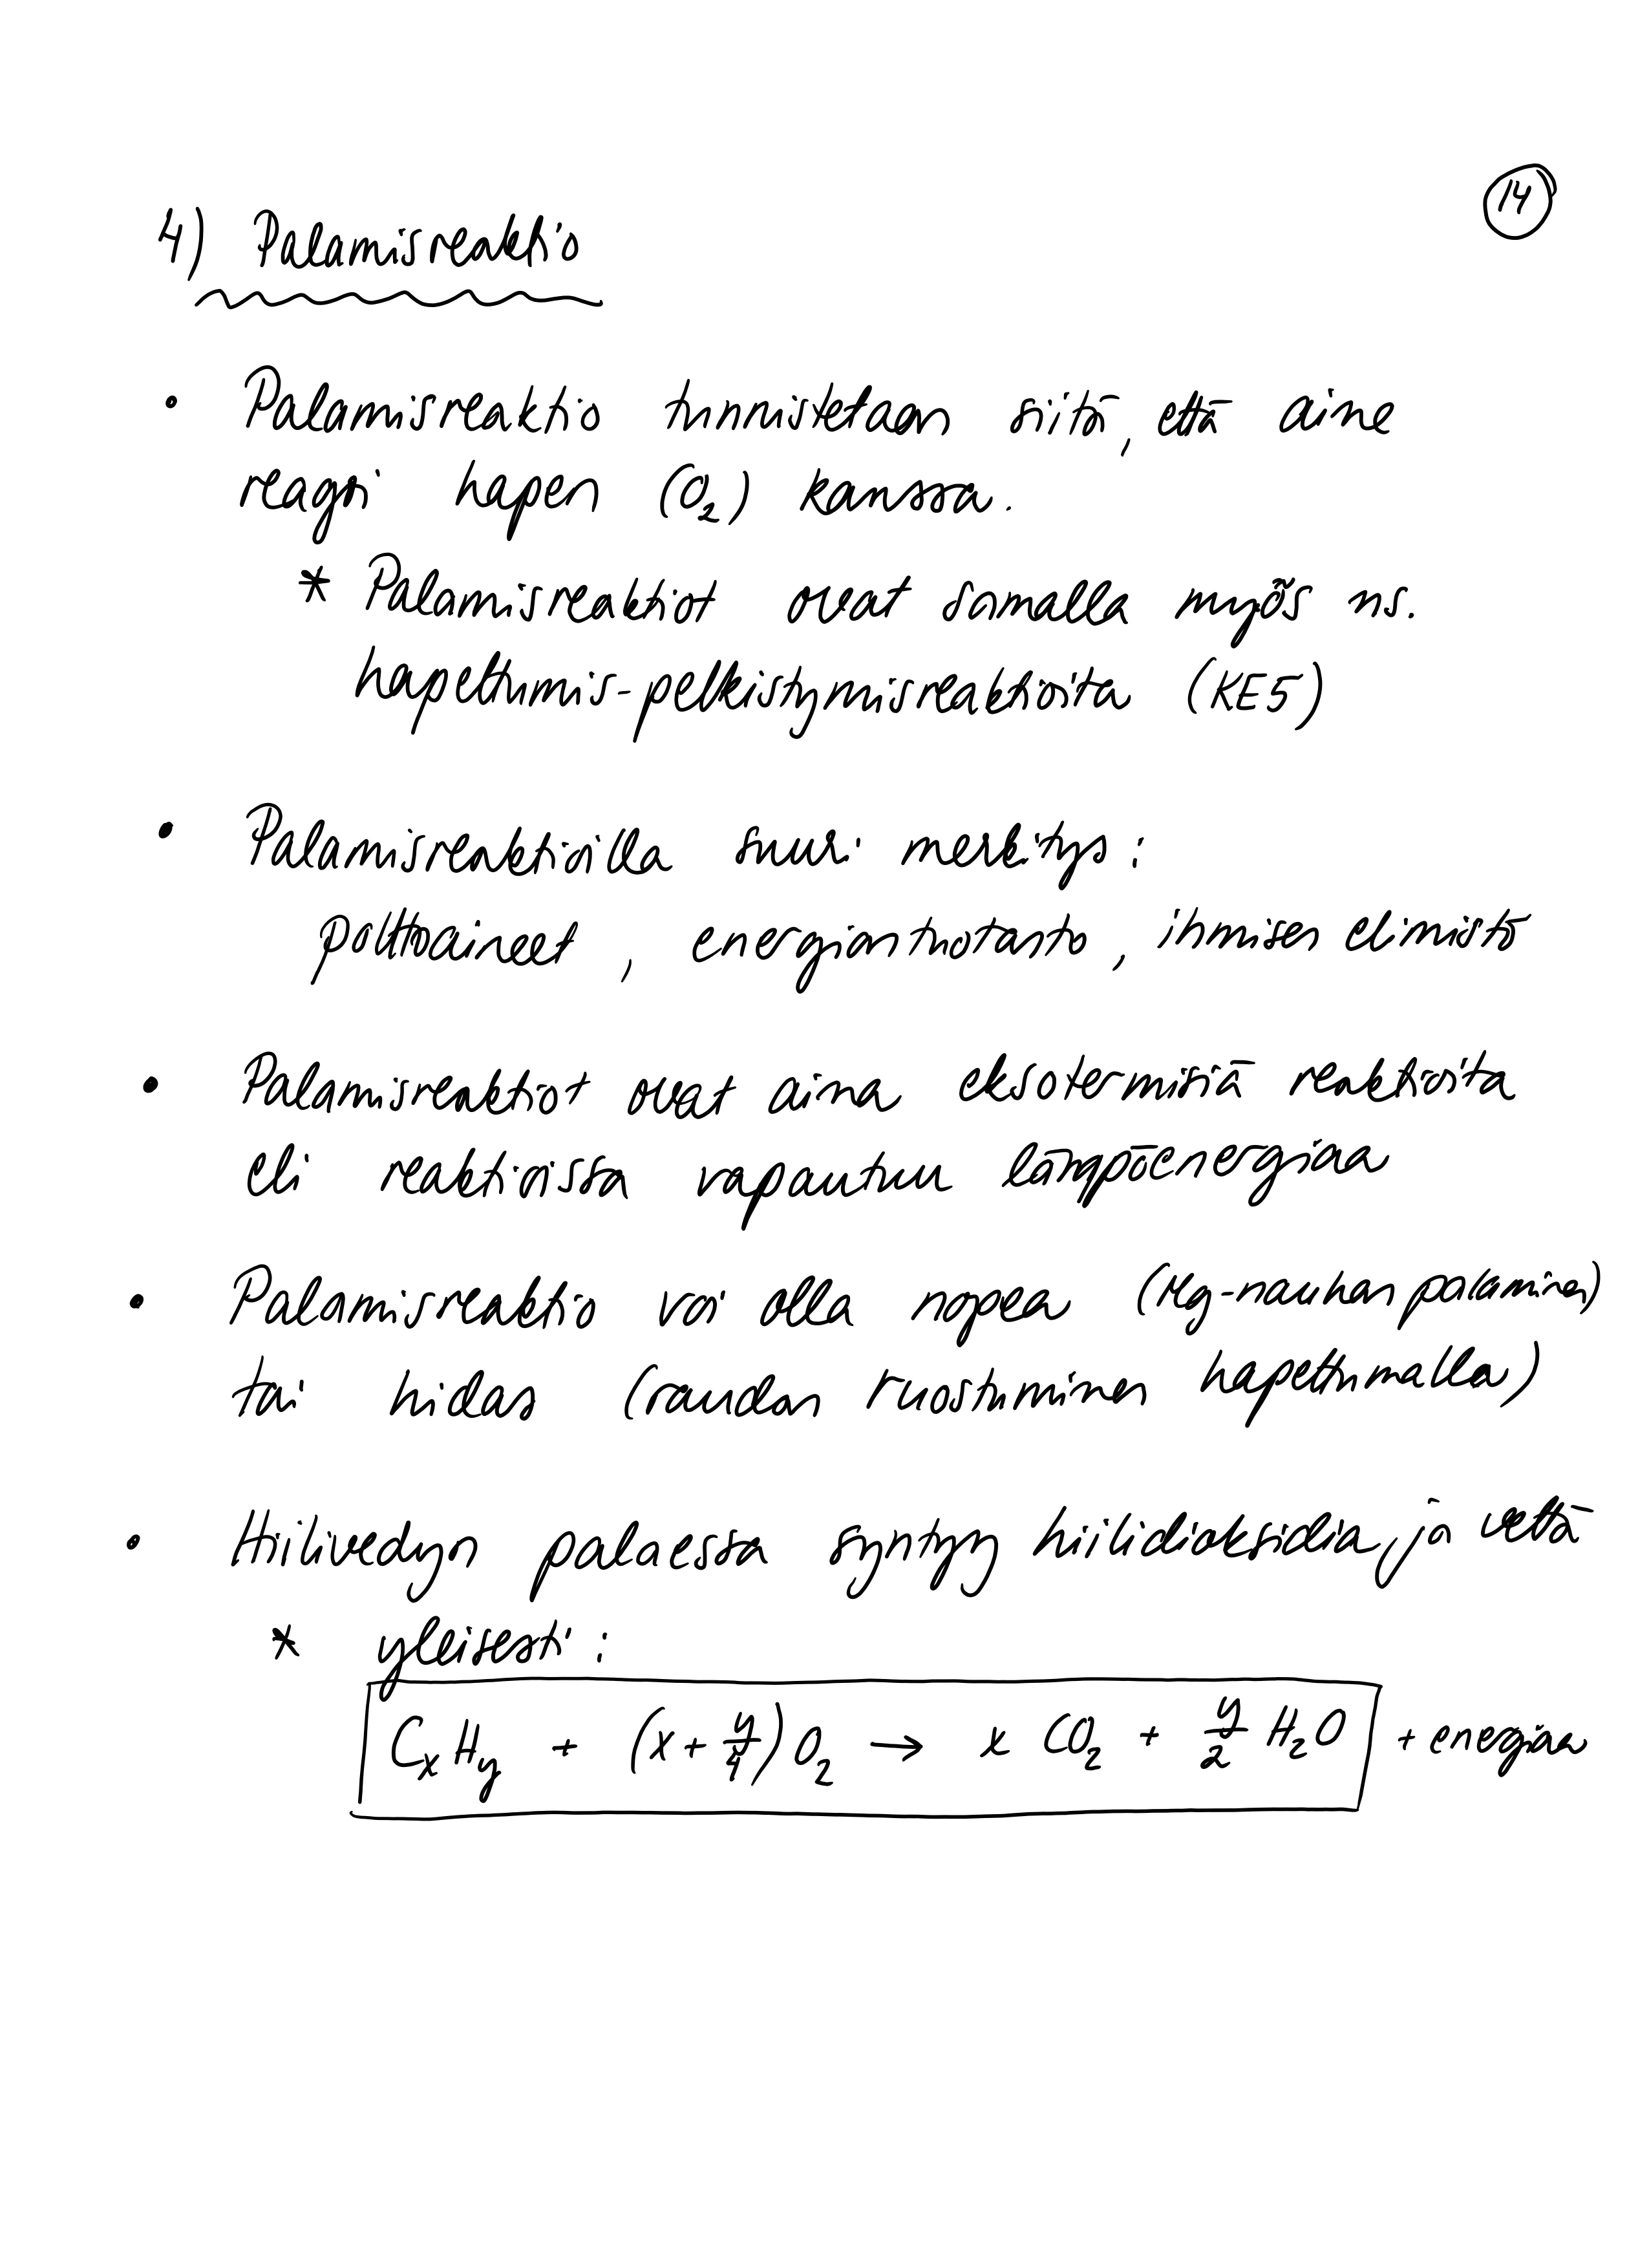 14
4) Palamisreaktio
• Palamisreaktio tunnistetaan siitä, että aine
reagoi hapen (O₂) kanssa.
* Palamisreaktiot ovat samalla myös ns.
hapettumis-pelkistymisreaktioita (KE5)
• Palamisreaktioilla suuri merkitys:
polttoaineet, energiantuotanto, ihmisen elimistö
• Palamisreaktiot ovat aina eksotermisiä reaktioita
eli reaktioissa vapautuu lämpöenergiaa
• Palamisreaktio voi olla nopea (Mg-nauhan palaminen)
tai hidas (raudan ruostuminen hapettumalla)
• Hiilivedyn palaessa syntyy hiilidioksidia ja vettä
* yleisesti:
CₓHᵧ + (x + y/4) O₂ → x CO₂ + y/2 H₂O + energiaa